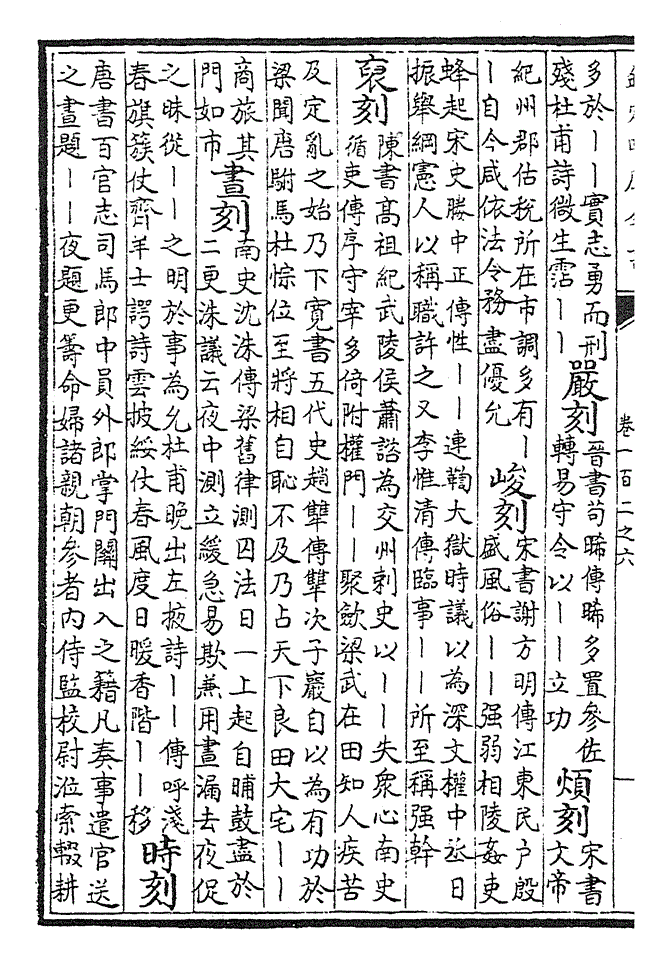 卷一百二之六
多於丨丨實志勇而刑
殘杜甫詩微生霑丨丨
嚴刻
晉書茍晞傳晞多置參佐
轉易守令以丨丨立功
煩刻
宋書
文帝
紀州郡估稅所在市調多有丨
丨自今咸依法令務盡優允
峻刻
宋書謝方明傳江東民户殷
盛風俗丨丨强弱相陵姦吏
蜂起宋史滕中正傳性丨丨連鞫大獄時議以為深文權中丞日
振舉綱憲人以稱職許之又李惟清傳臨事丨丨所至稱强幹
裒刻
陳書髙祖紀武陵侯蕭諮為交州刺史以丨丨失衆心南史
循吏傳序守宰多倚附權門丨丨聚歛梁武在田知人疾苦
及定亂之始乃下寛書五代史趙犨傳犨次子巖自以為有功於
梁聞唐駙馬杜悰位至將相自恥不及乃占天下良田大宅丨丨
商旅其
門如市
晝刻
南史沈洙傳梁舊律測囚法日一上起自晡鼓盡於
二更洙議云夜中測立緩急易欺兼用晝漏去夜促
之昧從丨丨之明於事為允杜甫晚出左掖詩丨丨傳呼淺
春旗簇仗齊羊士諤詩雲披綏仗春風度日暖香階丨丨移
時刻
唐書百官志司馬郎中員外郎掌門關出入之籍凡奏事遣官送
之晝題丨丨夜題更籌命婦諸親朝參者內侍監校尉涖索輟耕